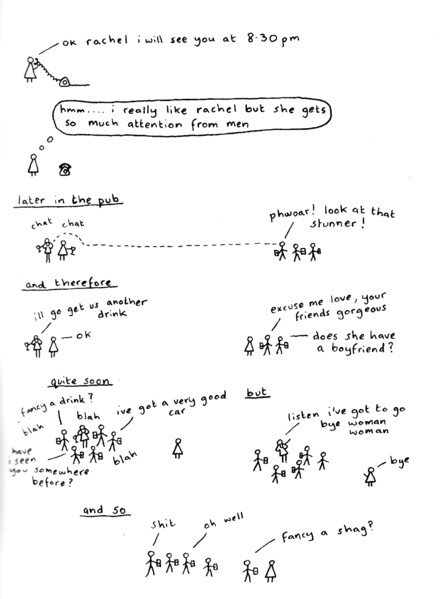 ok rachel i will see you at 8.30pm
hmm.... i really like rachel but she gets
so much attention from men
later in the pub
chat chat
phwoar! look at that
stunner!
and therefore
ill go get us another
drink
ok
excuse me love, your
friends gorgeous
does she have
a boyfriend?
quite soon
fancy a drink?
blah
blah
ive got a very good
car
have
i seen
you somewhere
before?
blah
but
listen i've got to go
bye woman
woman
bye
and so
shit
oh well
fancy a shag?